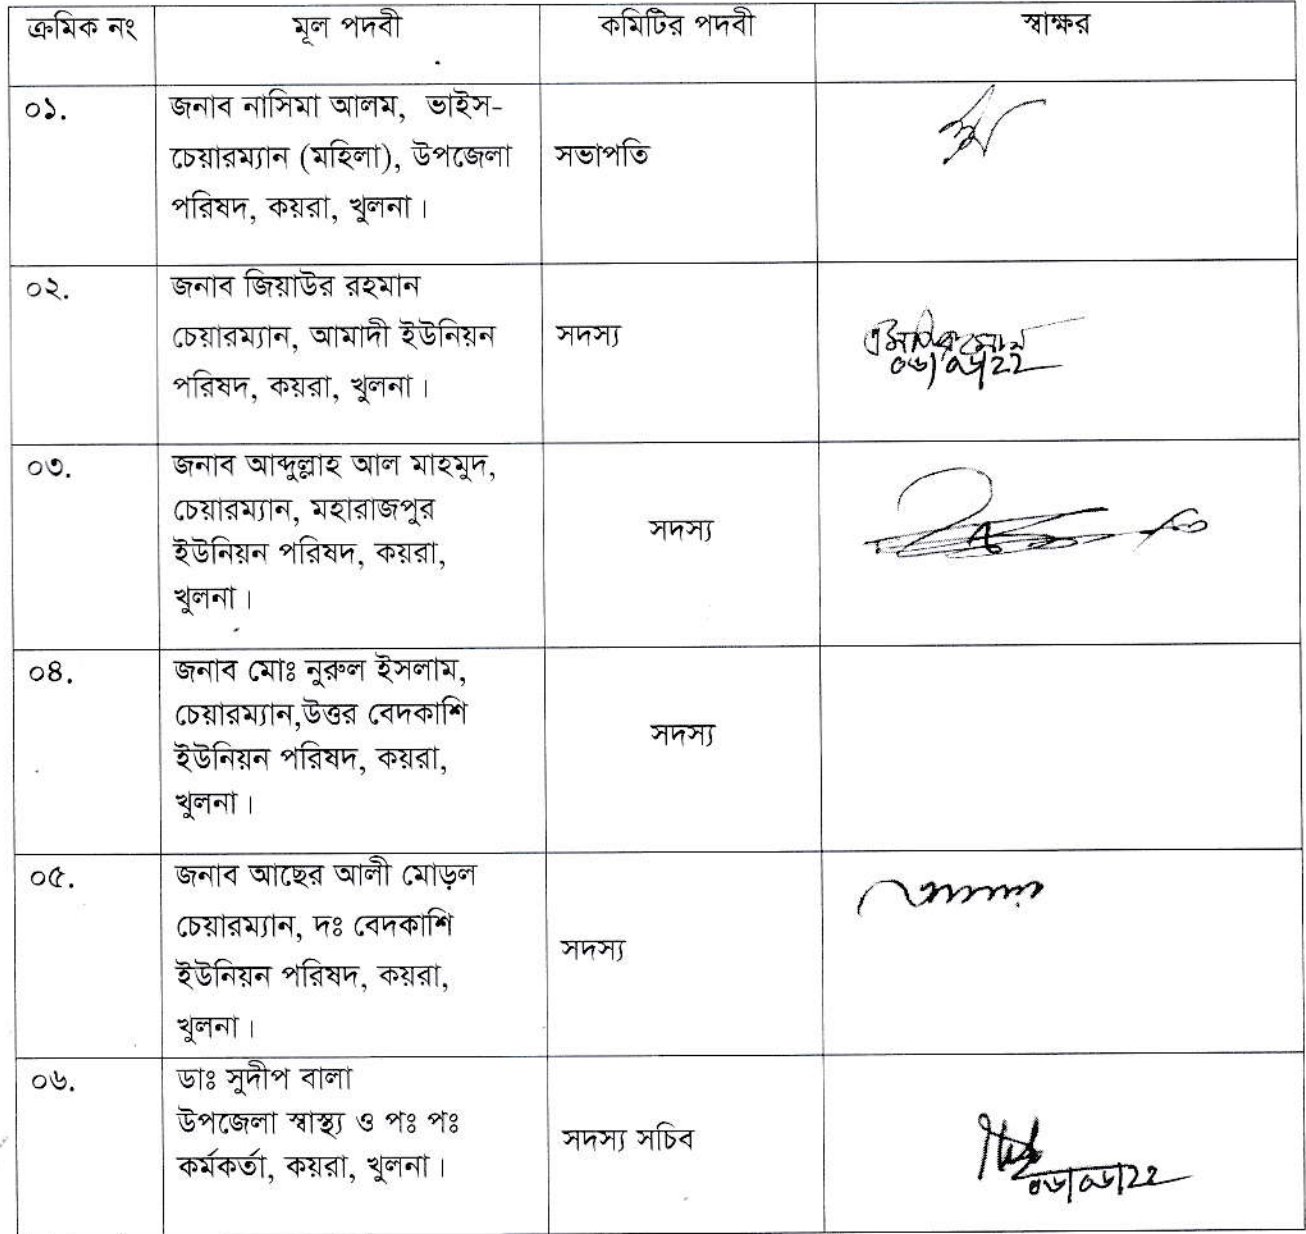 ক্রমিক নং মূল পদবী কমিটির পদবী স্বাক্ষর
০১. জনাব নাসিমা আলম, ভাইস-
চেয়ারম্যান (মহিলা), উপজেলা সভাপতি
পরিষদ, কয়রা, খুলনা।
০২. জনাব জিয়াউর রহমান
চেয়ারম্যান, আমাদী ইউনিয়ন সদস্য
পরিষদ, কয়রা, খুলনা।
০৬/০৬/22
০৩. জনাব আব্দুল্লাহ আল মাহমুদ,
চেয়ারম্যান, মহারাজপুর সদস্য
ইউনিয়ন পরিষদ, কয়রা,
খুলনা।
০৪. জনাব মোঃ নুরুল ইসলাম,
চেয়ারম্যান,উত্তর বেদকাশি সদস্য
ইউনিয়ন পরিষদ, কয়রা,
খুলনা।
০৫. জনাব আছের আলী মোড়ল
চেয়ারম্যান, দঃ বেদকাশি সদস্য
ইউনিয়ন পরিষদ, কয়রা,
খুলনা।
০৬. ডাঃ সুদীপ বালা
উপজেলা স্বাস্থ্য ও পঃ পঃ সদস্য সচিব
কর্মকর্তা, কয়রা, খুলনা।
০৬/০৬/22